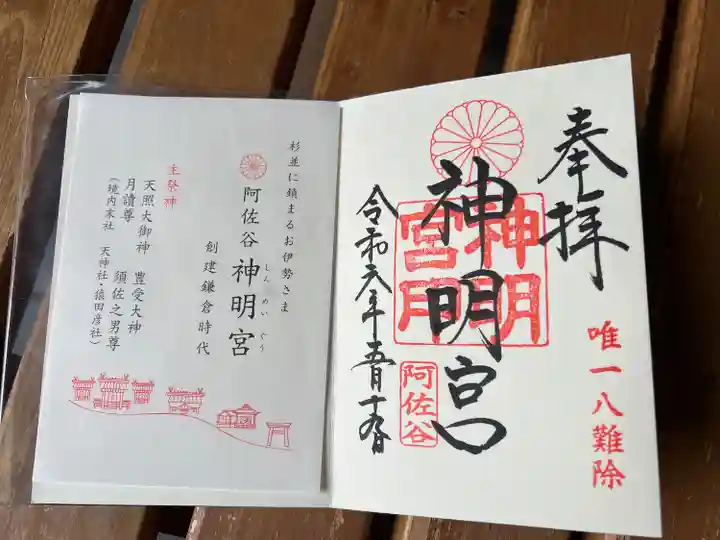 奉拝
唯一八難除
神明宮
神明宮
阿佐谷
令和六年五月十九日
杉並に鎮まるお伊勢さま
阿佐谷 神明宮
しん めい ぐう
創建鎌倉時代
主祭神
天照大御神 豊受大神
月讀尊 須佐之男尊
(境内末社 天神社・猿田彦社)